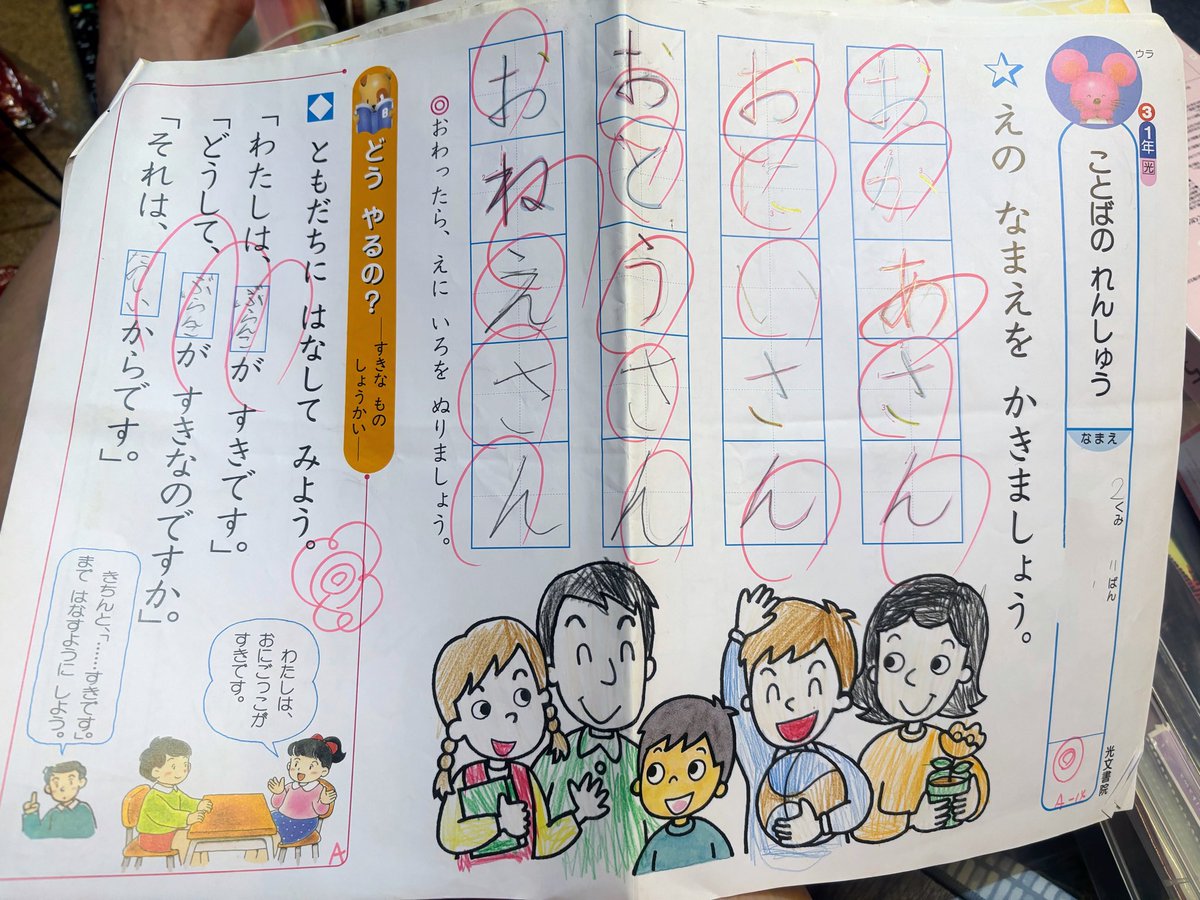 ウラ
3 1年 光
ことばの れんしゅう
なまえ
2くみ
11ばん
光文書院
☆えの なまえを かきましょう。
おかあさん
おにいさん
おとうさん
おねえさん
◎おわったら、えに いろを ぬりましょう。
どう やるの?
―すきな もの
しょうかい―
ともだちに はなして みよう。
「わたしは、ぶらんこが すきです。」
「どうして、ぶらんこが すきなのですか。」
「それは、からです。」
わたしは、
おにごっこが
すきです。
きちんと、「……すきです。」
まで はなすように しよう。
A